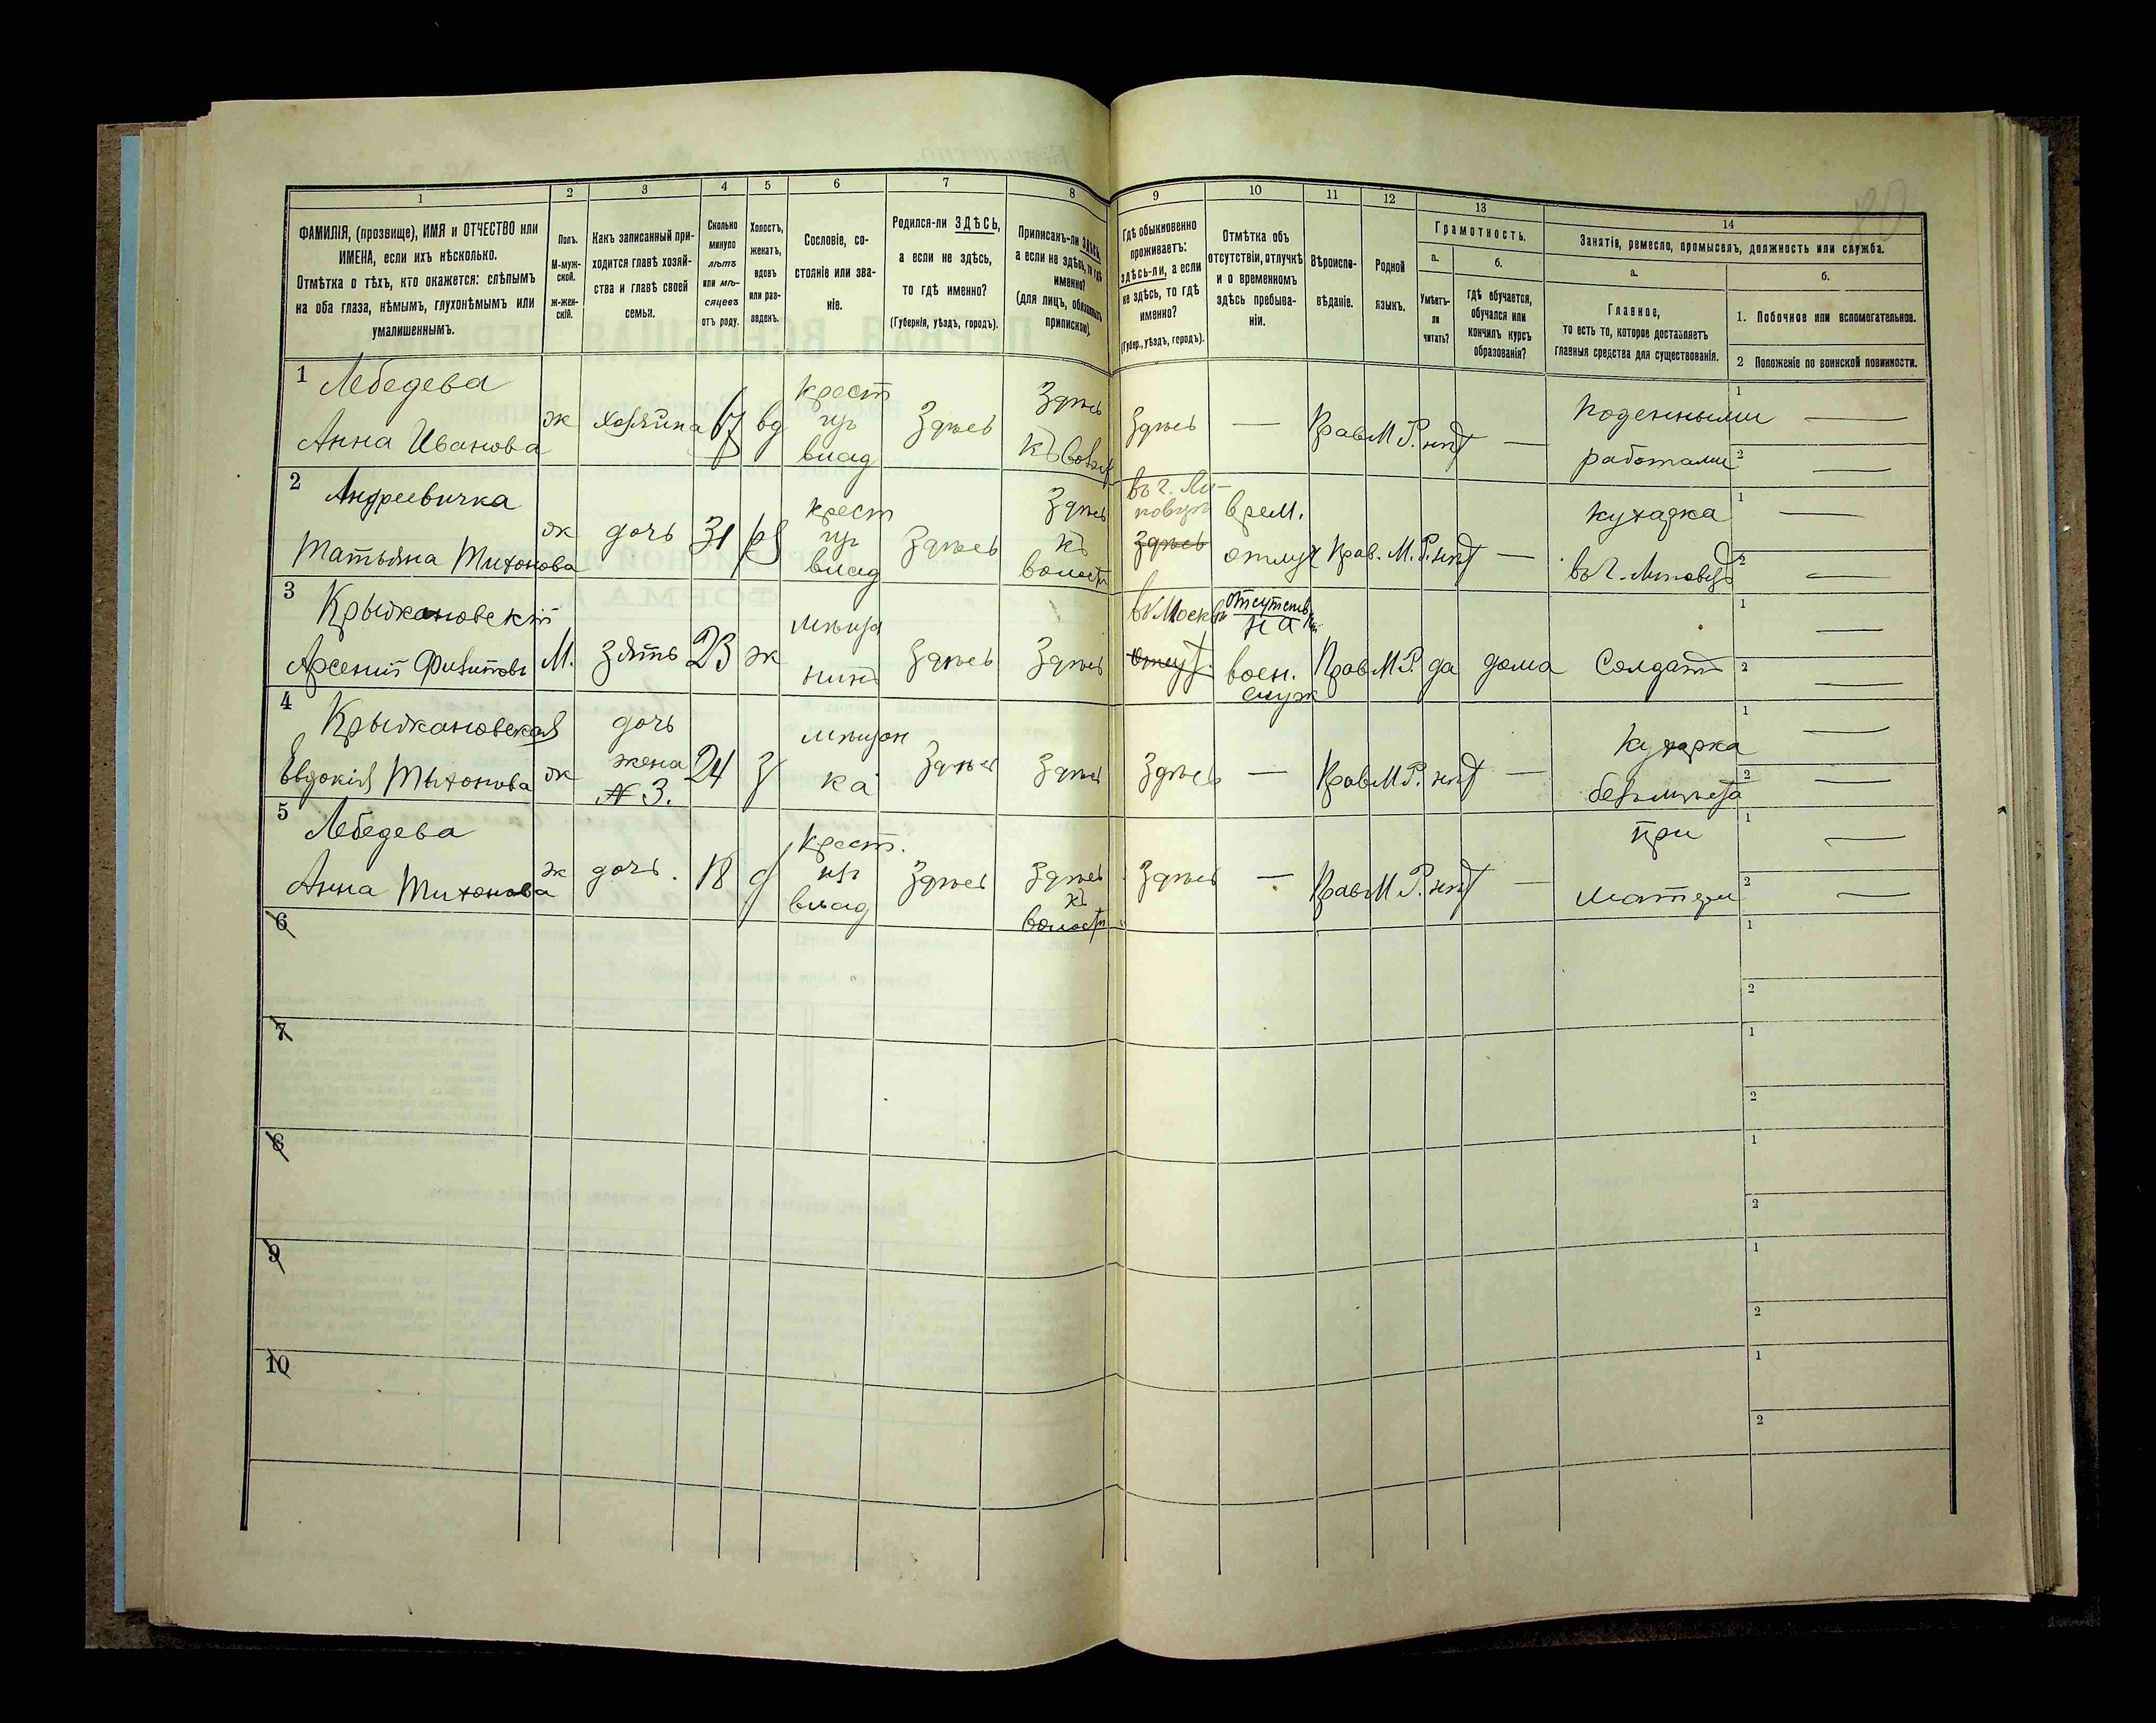 1 2 3 4 5 6 7 8 9 10 11 12 13 14
ФАМИЛІЯ, (прозвище), ИМЯ и ОТЧЕСТВО или
ИМЕНА, если ихъ нѣсколько.
Отмѣтка о тѣхъ, кто окажется: слѣпымъ
на оба глаза, нѣмымъ, глухонѣмымъ или
умалишеннымъ.
Полъ.
М-муж-
ской.
Ж-жен-
скій.
Какъ записанный при-
ходится главѣ хозяй-
ства и главѣ своей
семьи.
Сколько
минуло
лѣтъ
или мѣ-
сяцевъ
отъ роду.
Холостъ,
женатъ,
вдовъ
или раз-
веденъ.
Сословіе, со-
стояніе или зва-
ніе.
Родился-ли ЗДѢСЬ,
а если не здѣсь,
то гдѣ именно?
(Губернія, уѣздъ, городъ).
Приписанъ-ли ЗДѢСЬ,
а если не здѣсь, то гдѣ
именно?
(для лицъ, обязанныхъ
припискою).
Гдѣ обыкновенно
проживаетъ:
здѣсь-ли, а если
не здѣсь, то гдѣ
именно?
(Губер., уѣздъ, городъ).
Отмѣтка объ
отсутствіи, отлучкѣ
и о временномъ
здѣсь пребыва-
ніи.
Вѣроиспо-
вѣданіе.
Родной
языкъ.
Грамотность.
а.
Умѣетъ-
ли
читать?
б.
гдѣ обучается,
обучался или
кончилъ курсъ
образованія?
Занятіе, ремесло, промыселъ, должность или служба.
а.
Главное,
то есть то, которое доставляетъ
главныя средства для существованія.
б.
1. Побочное или вспомогательное.
2 Положеніе по воинской повинности.
1 Лебедева
Анна Иванова
ж
хозяйка
вд
крест
изъ
влад
Здѣсь
Здѣсь
Здѣсь
—
Прав
М Р.
нѣт
—
Поденными
работами
1 —
2 —
2 Андреевичка
Татьяна Тихонова
ж
дочь
31
крест
изъ
влад
Здѣсь
Здѣсь
къ
волости
въ г. Ли-
повцѣ
Здѣсь
врем.
отлуч
Прав.
М. Р.
нѣт
—
кухарка
въ г. Липовцѣ
1 —
2 —
3 Крыжановскій
Арсеній Филиповъ
М.
зять
23
ж
мѣща
нинъ
Здѣсь
Здѣсь
въ Москвѣ
отсут.
на
воен.
служ
Прав
М Р.
да
дома
Солдатъ
1 —
2 —
4 Крыжановская
Евдокія Тихонова
ж
дочь
жена
№ 3.
24
з
мѣщан
ка
Здѣсь
Здѣсь
Здѣсь
—
Прав
М Р.
нѣт
—
Кухарка
безъ мѣста
1 —
2 —
5 Лебедева
Анна Тихонова
ж
дочь.
18
д
Крест.
изъ
влад
Здѣсь
Здѣсь
къ
волости
Здѣсь
—
Прав
М Р.
нѣт
—
при
матери
1 —
2 —
6
1
2
7
1
2
8
1
2
9
1
2
10
1
2